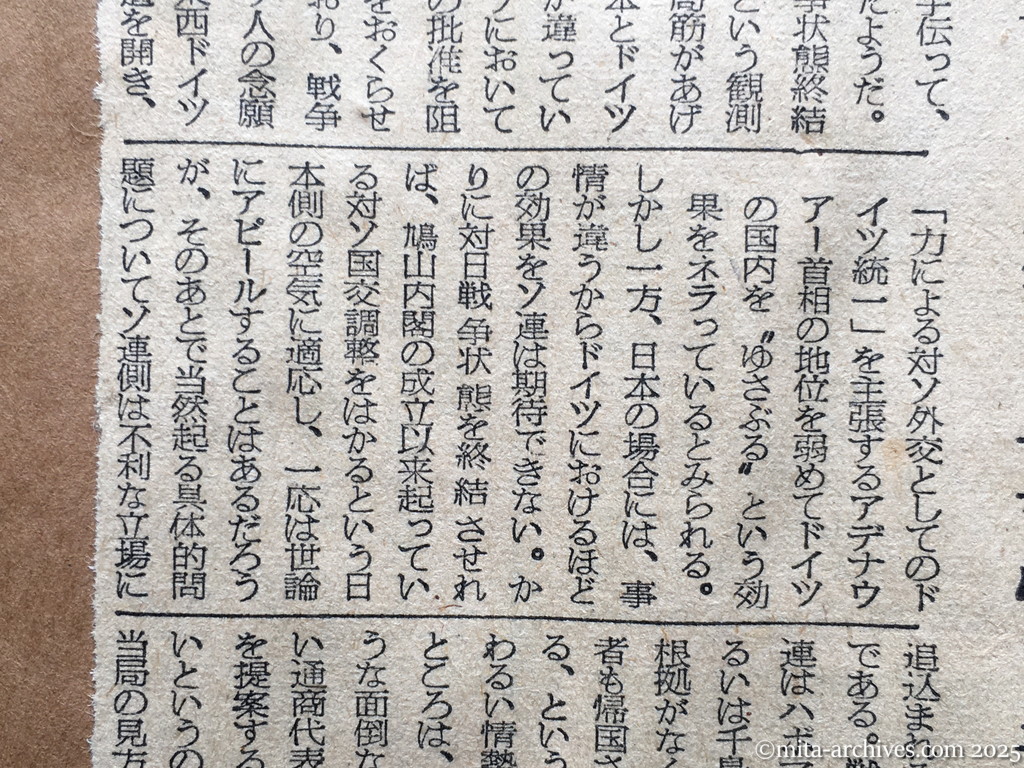 手伝って、
たようだ。
争状態終結
という観測
局筋があげ
本とドイツ
が違ってい
りにおいて
の批准を阻
をおくらせ
おり、戦争
人の念願
東西ドイツ
を開き、
「力による対ソ外交としてのド
イツ統一」を主張するアデナウ
アー首相の地位を弱めてドイツ
の国内を〝ゆさぶる〟という効
果をネラっているとみられる。
しかし一方、日本の場合には、事
情が違うからドイツにおけるほど
の効果をソ連は期待できない。か
りに対日戦争状態を終結させれ
ば、鳩山内閣の成立以来起ってい
る対ソ国交調整をはかるという日
本側の空気に適応し、一応は世論
にアピールすることはあるだろう
が、そのあとで当然起る具体的問
題についてソ連側は不利な立場に
追込まれ
である。
連はハボマ
るいは千島
根拠がなく
者も帰国さ
る、という
わるい情勢
ところは、
うな面倒な
い通商代表
を提案する
いというの
当局の見方
©mita-archives.com 2025